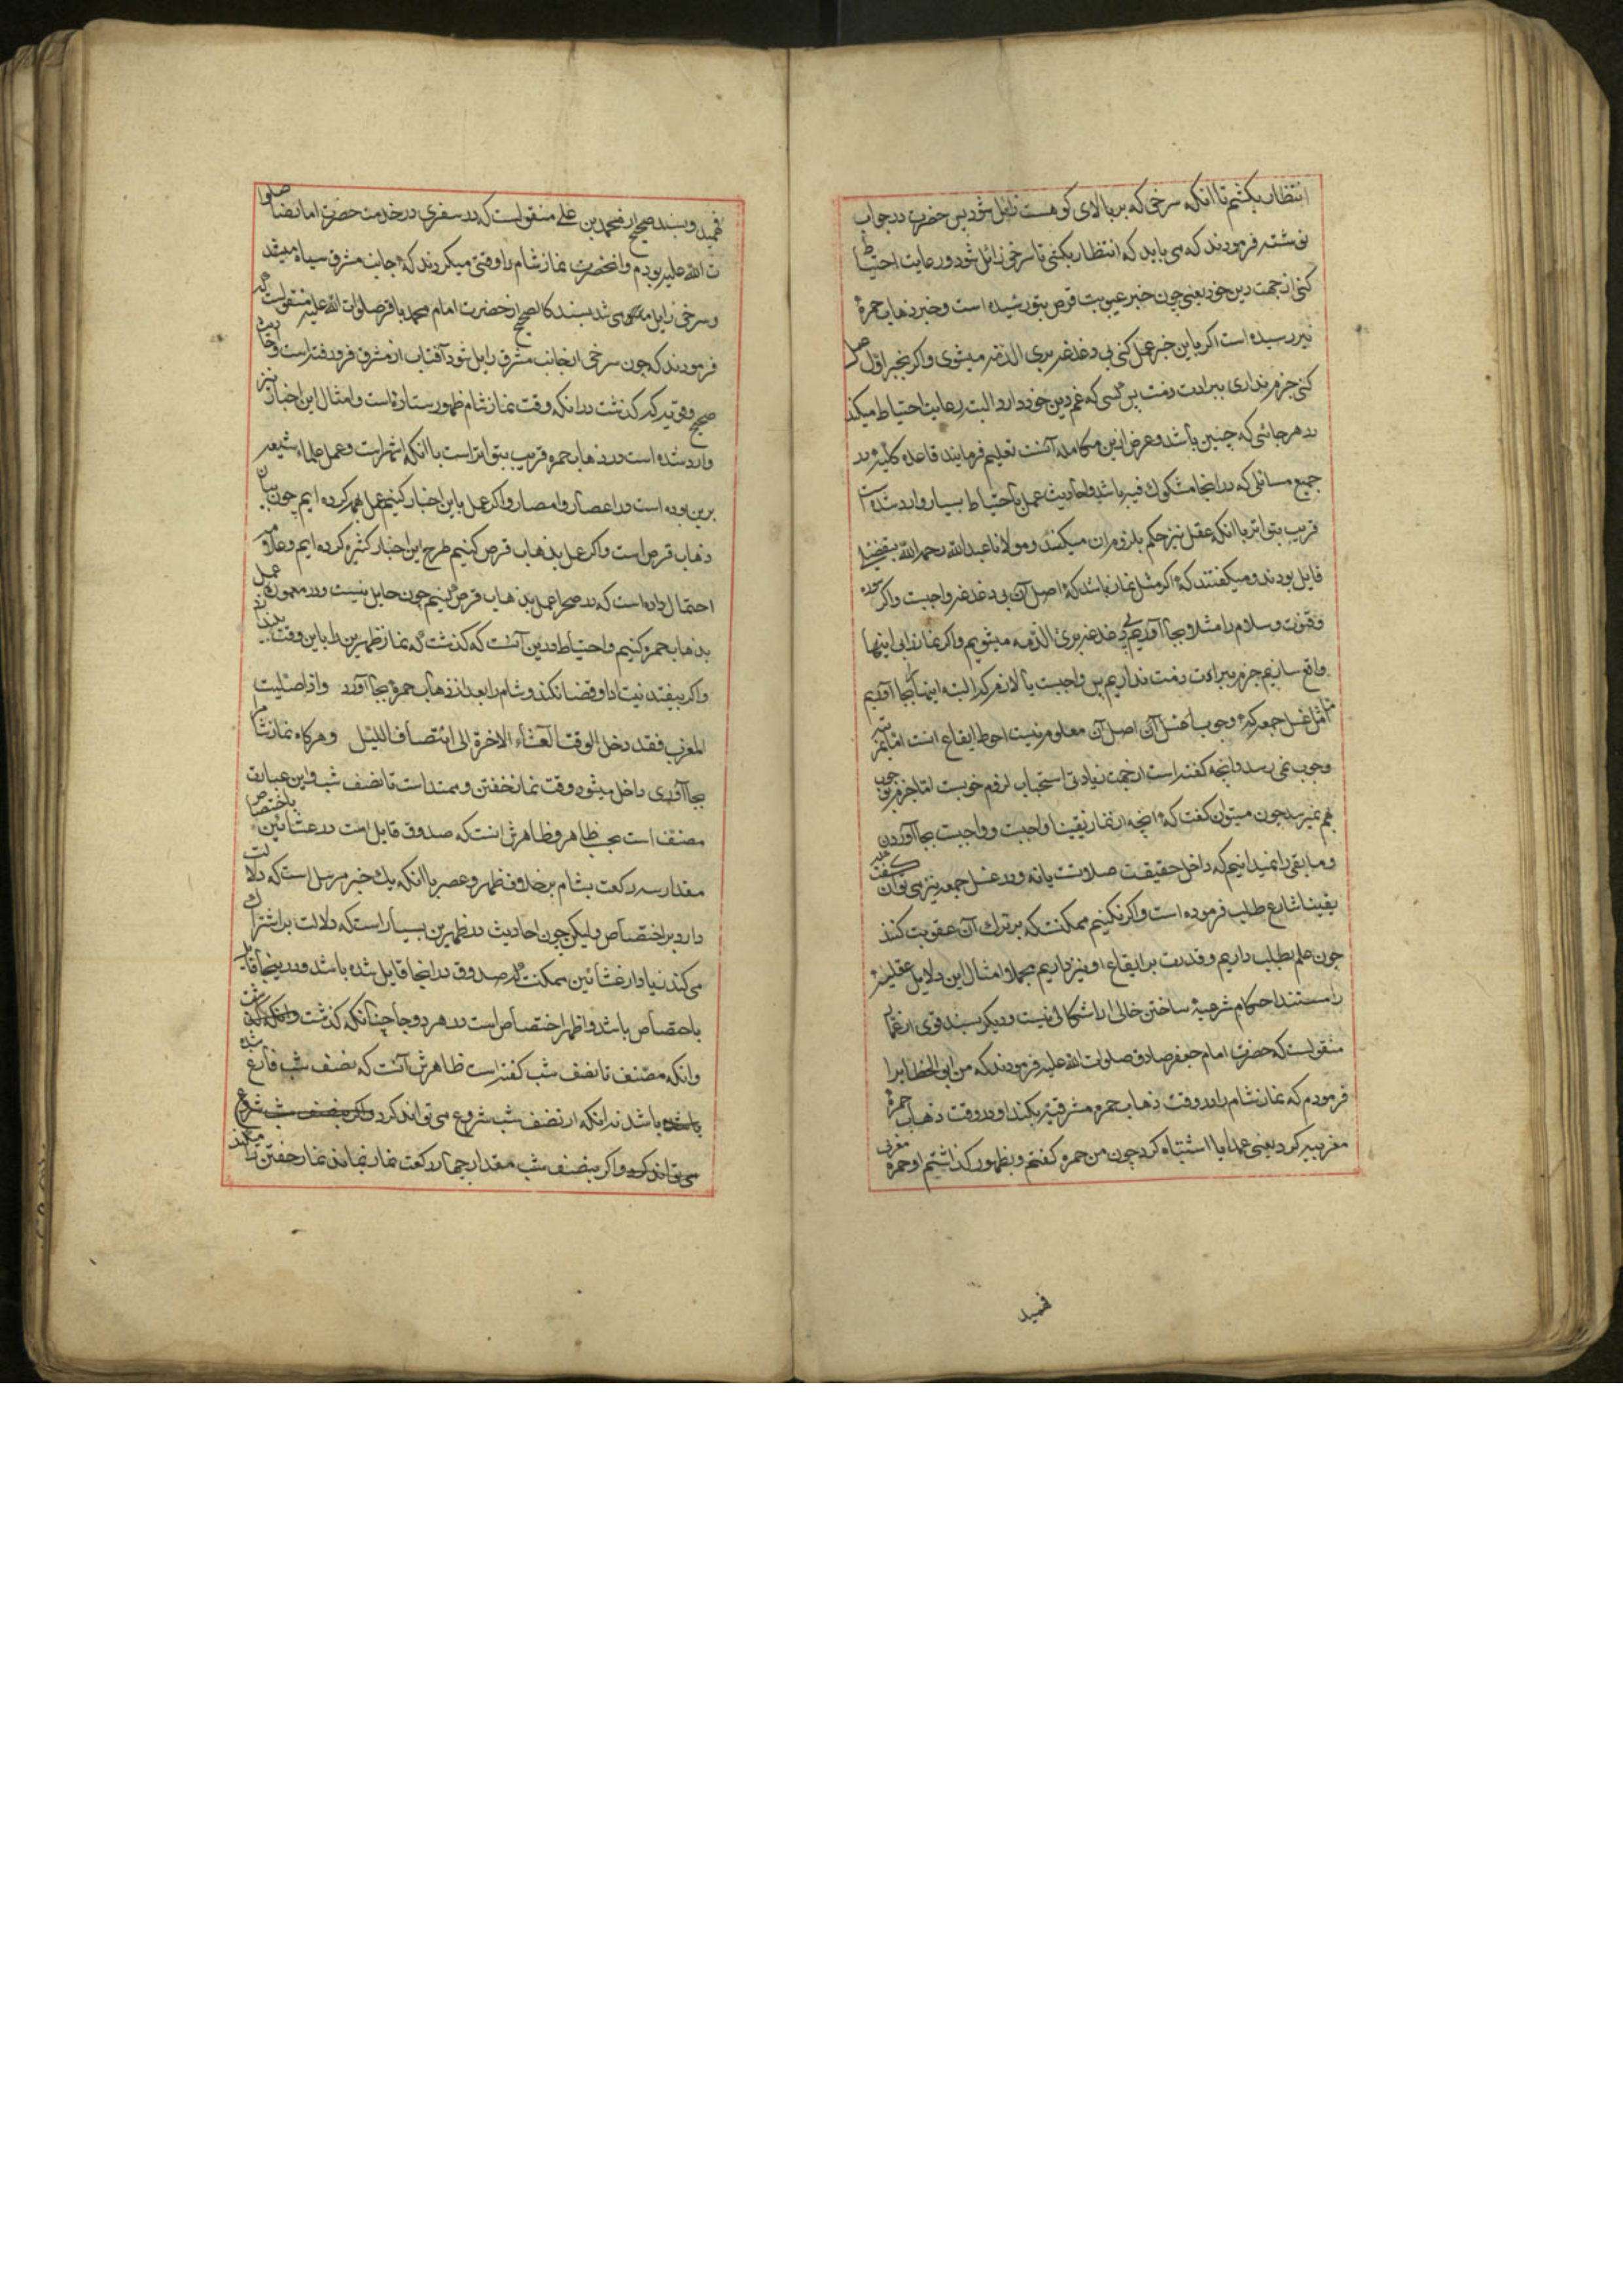 انتظار بکشیم تا انکه سرخی که بر بالای کوهست زایل شود پس حضرت در جواب
نوشته فرمودند که می باید که انتظار بکشی تا سرخی زائل شود و رعایت احتیاط
کنی از جهت دین خود یعنی چون خبر غیبوبت قرص بتو رسیده است و خبر ذهاب حمرة
نیز رسیده است اکر باین خبر عمل کنی بی دغدغه بری الذمه میشوی و اکر بخبر اوّل عمل
کنی جزم نداری ببراءت ذمت پس کسی که غم دین خود دارد البته رعایت احتیاط میکند
در هر جائی که چنین باشد و غرض ازین مکامله آنست تعلیم فرمایند قاعده کلیه در
جمیع مسائلی که در انجا مشکوک فیه باشد و احادیث عمل باحتیاط بسیار وارد شده است
قریب بتواتر با انکه عقل نیز حکم بلزوم ان میکند و مولانا عبد الله رحمه الله
قایل بودند و میکفتند که اکر مثل نماز باشد که اصل آن بی دغدغه واجبست و اکر سوره
و قنوت و سلام را مثلا بجا آوریم بی دغدغه بری الذمه میشویم و اکر نماز را بی اینها
واقع سازیم جزم ببراءت ذمت نداریم پس واجبست یا لازم که البته اینها بجا آوریم
اما مثل غسل جمعه که وجوب اصل آن معلوم نیست احوط ایقاع انست اما بمرتبه
وجوب نمی رسد و انچه کفته است از جهت زیادتی استحباب لزوم خوبست اما جزم بوجوب
هم نمیرسد چون میتوان کفت که انچه از نماز یقینا واجبست و واجبست بجا آوردن
و مابقی را نمیدانیم که داخل حقیقت صلوتست یا نه و در غسل جمعه نیز می توان کفت که
یقینا شارع طلب فرموده است و اکر نکنیم ممکنست که بر ترک آن عقوبت کنند
چون علم بطلب داریم و قدرت بر ایقاع او نیز داریم مجملا و امثال این دلایل عقلیه
را مستند احکام شرعیه ساختن خالی از اشکالی نیست و دیکر بسند قوی از عمار
منقولست که حضرت امام جعفر صادق صلوات الله علیه فرمودند که من ابی الخطاب را
فرمودم که نماز شام را در وقت ذهاب حمره مشرقیه بکند او در وقت ذهاب حمرة
مغربیه کرد یعنی عمدا یا اشتباه کرد چون من حمره کفتم و بظهور کذاشتم او حمره مغربی
فهمید
فهمید و بسند صحیح از محمد بن علی منقولست که در سفری در خدمت حضرت امام رضا صلوا
ت الله علیه بودم و انحضرت نماز شام را وقتی میکردند که جانب مشرق سیاه میشد
و سرخی زایل می شد بسند کالصحیح از حضرت امام محمد باقر صلوات الله علیه منقولست که
فرمودند که چون سرخی از جانب مشرق زایل شود آفتاب از مشرق فرو رفته است و حدیث
صحیح و قوتیه که کذشت در انکه وقت نماز شام ظهور ستاره است و امثال این اخبار نیز
وارد شده است در ذهاب حمره قریب بتواتر است با انکه اشهر است و عمل علماء شیعه
برین بوده است در اعصار و امصار و اکر عمل باین اخبار کنیم عمل بهمه کرده ایم چون بیان
ذهاب قرص است و اکر عمل بذهاب قرص کنیم طرح این اخبار کثیره کرده ایم و علامه
احتمال داده است که در صحرا عمل بذهاب قرص کنیم چون حایل نیست و در معموره عمل
بذهاب حمره کنیم و احتیاط در دین آنست که کذشت که نماز ظهرین را باین وقت نیندازند
و اکر بیفتد نیت ادا و قضا نکند و شام را بعد از ذهاب حمره بجا آورد و اذا صلّیت
المغرب فقد دخل الوقت العشاء الاخرة الی انتصاف اللیل و هرکاه نماز شام را
بجا آوردی داخل میشود وقت نماز خفتن و ممتد است تا نصف شب و این عبارت
مصنف است بحسب ظاهر و ظاهرش انست که صدوق قایل است در عشائین باختصاص
مقدار سه رکعت بشام بر خلاف ظهر و عصر با انکه یک خبر مرسل است که دلالت
دارد بر اختصاص و لیکن چون احادیث در ظهرین بسیار است که دلالت بر اشتراک
می کند زیاد از عشائین ممکنست که صدوق در انجا قایل شده باشد و در ینجا قایل
باختصاص باشد و اظهر اختصاص است در هر دو جا چنانکه کذشت
و انکه مصنف تا نصف شب کفته است ظاهرش آنست که نصف شب فارغ شده
باشد نه انکه از نصف شب شروع می تواند کرد و اکر بنصف شب شروع
می تواند کرد و اکر بنصف شب مقدار چهار رکعت نماز نماند نماز خفتن را میکند